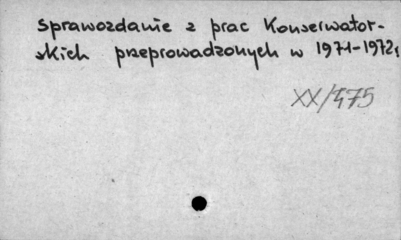 Sprawozdanie z prac konserwator-
skich przeprowadzonych w 1971-1972r
XX/475